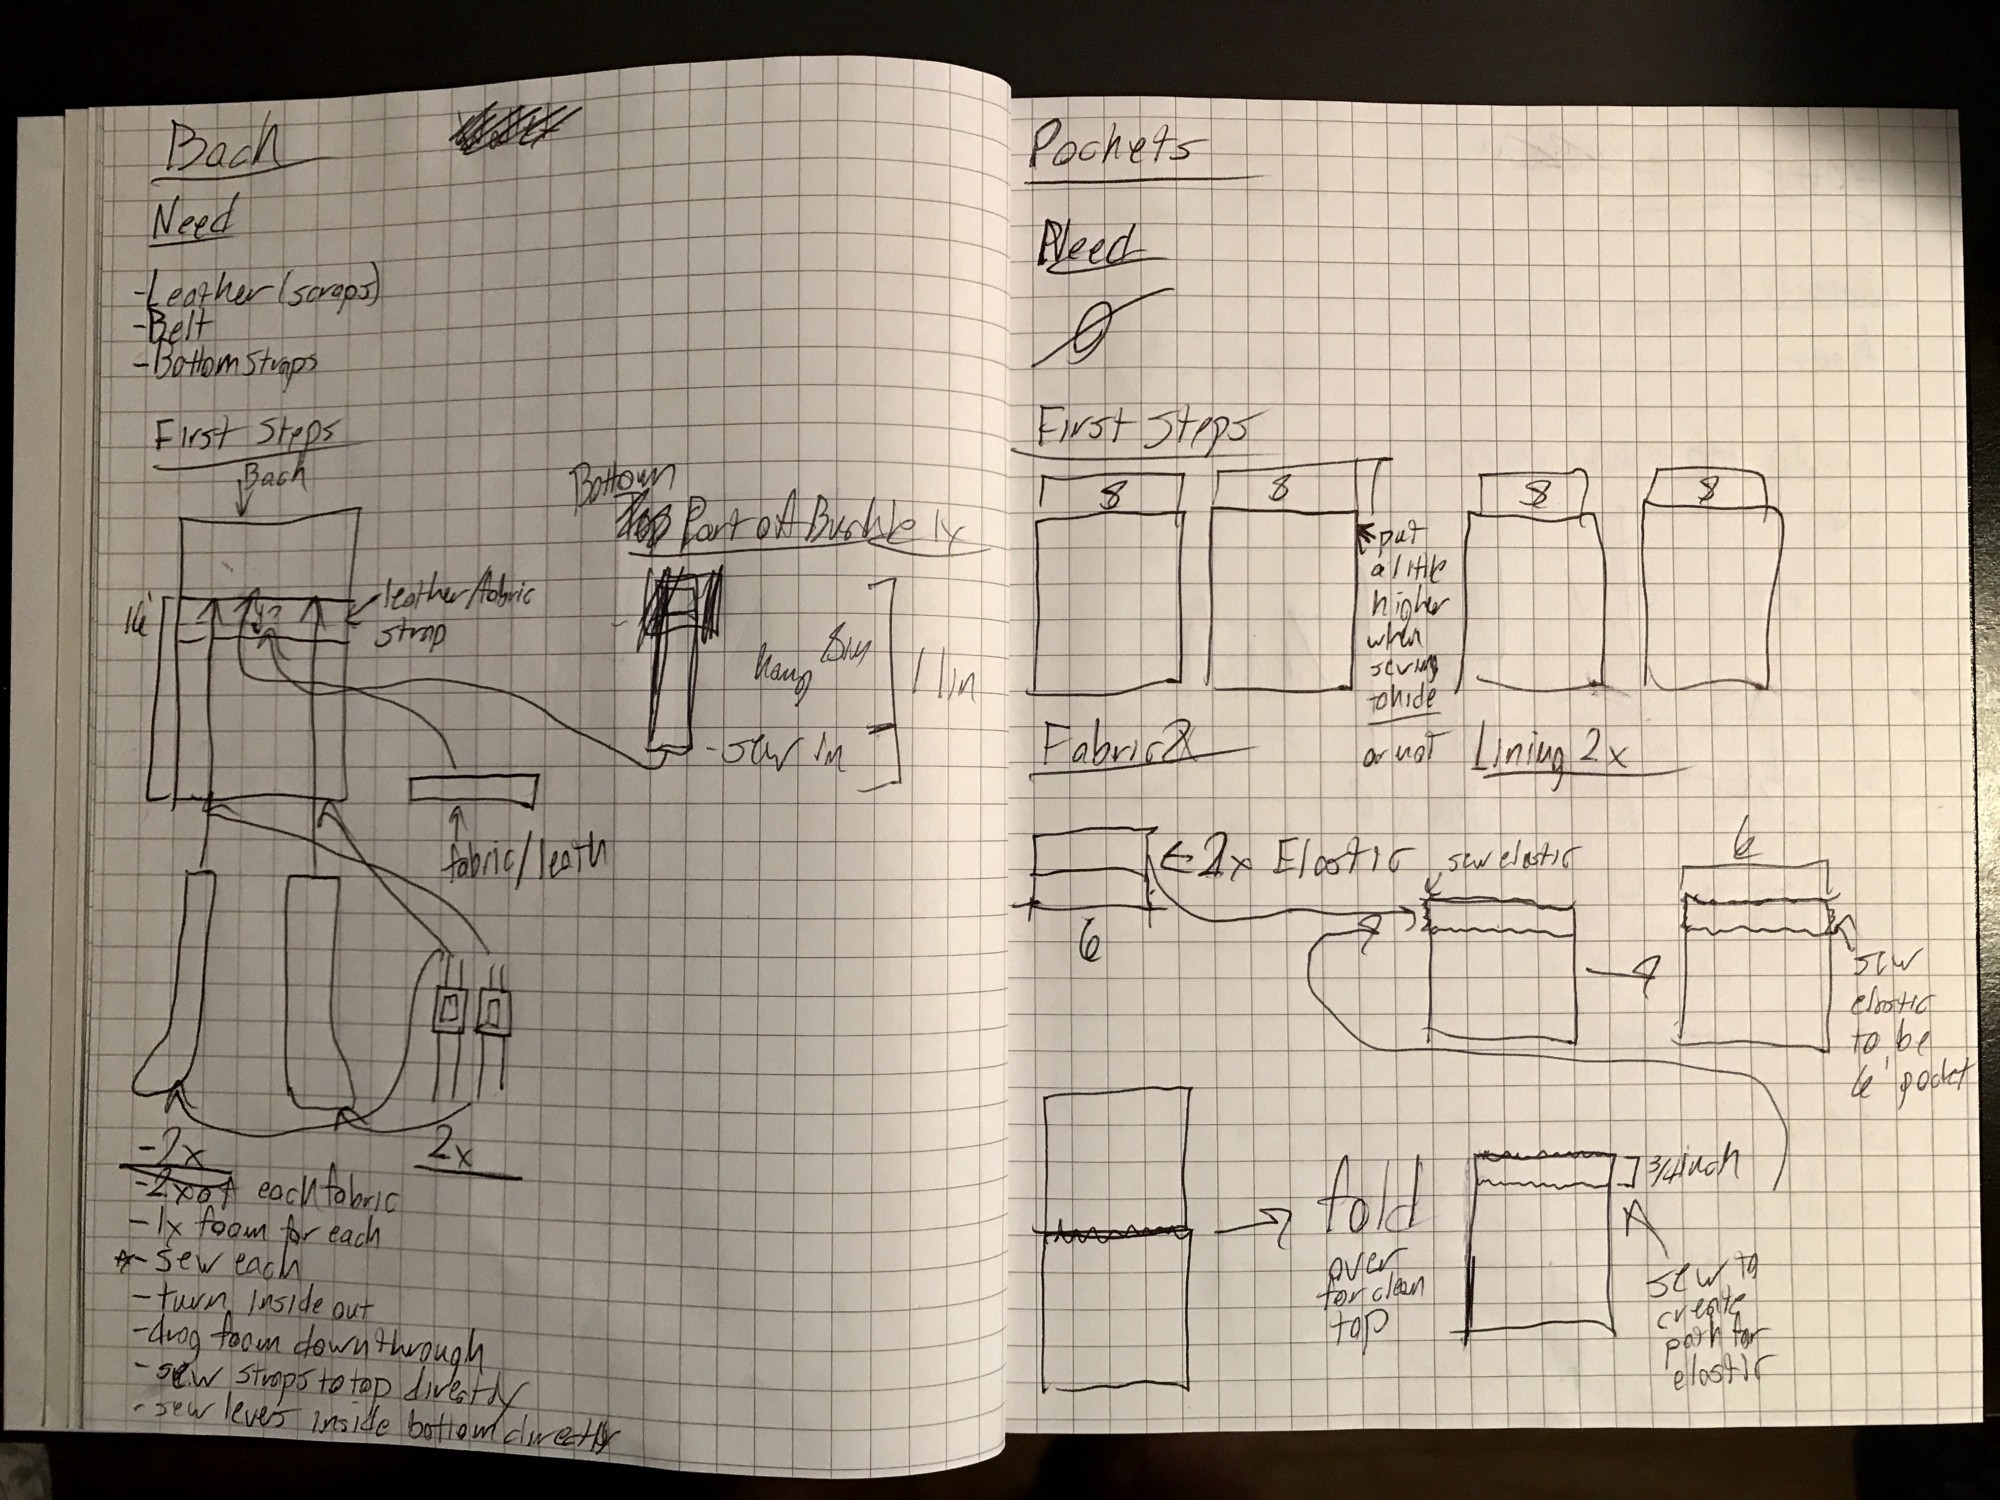 Back
Need
-Leather (scraps)
-Belt
-Bottom straps
First Steps
Back
16"
leather/fabric
strap
Bottom
Part of Buckle 1x
hang
8in
11in
-sew in
fabric/leath
-2x
2x
-2x of each fabric
-1x foam for each
-sew each
-turn inside out
-drag foam down through
-sew straps to top directly
-sew levers inside bottom directly
Pockets
Need
First Steps
8
8
8
8
put
a little
higher
when
sewing
to hide
or not
Fabric 2x
Lining 2x
2x Elastic
6
sew elastic
6
sew
elastic
to be
6" pocket
fold
over
for clean
top
3/4 inch
sew to
create
path for
elastic